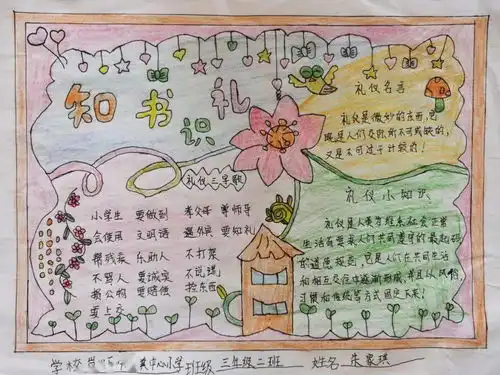 知书识礼
礼仪三字歌
小学生 要做到 孝父母 尊师长
会使用 文明语 遇外宾 要知礼
帮残弱 乐助人 不打架
不骂人 要诚实 不说谎
损公物 要赔偿 拾东西
要上交
礼仪名言
礼仪是微妙的东西,它
既是人们交际所不可或缺的,
又是不可过于计较的!
礼仪小知识
礼仪是人类为维系社会正常
生活而要求人们共同遵守的最起码
的道德规范,它是人们在共同生活
和相互交往中逐渐形成,并且以风俗
习惯和传统等方式固定下来!
学校 中心小学 班级 三年级二班 姓名 朱家琪